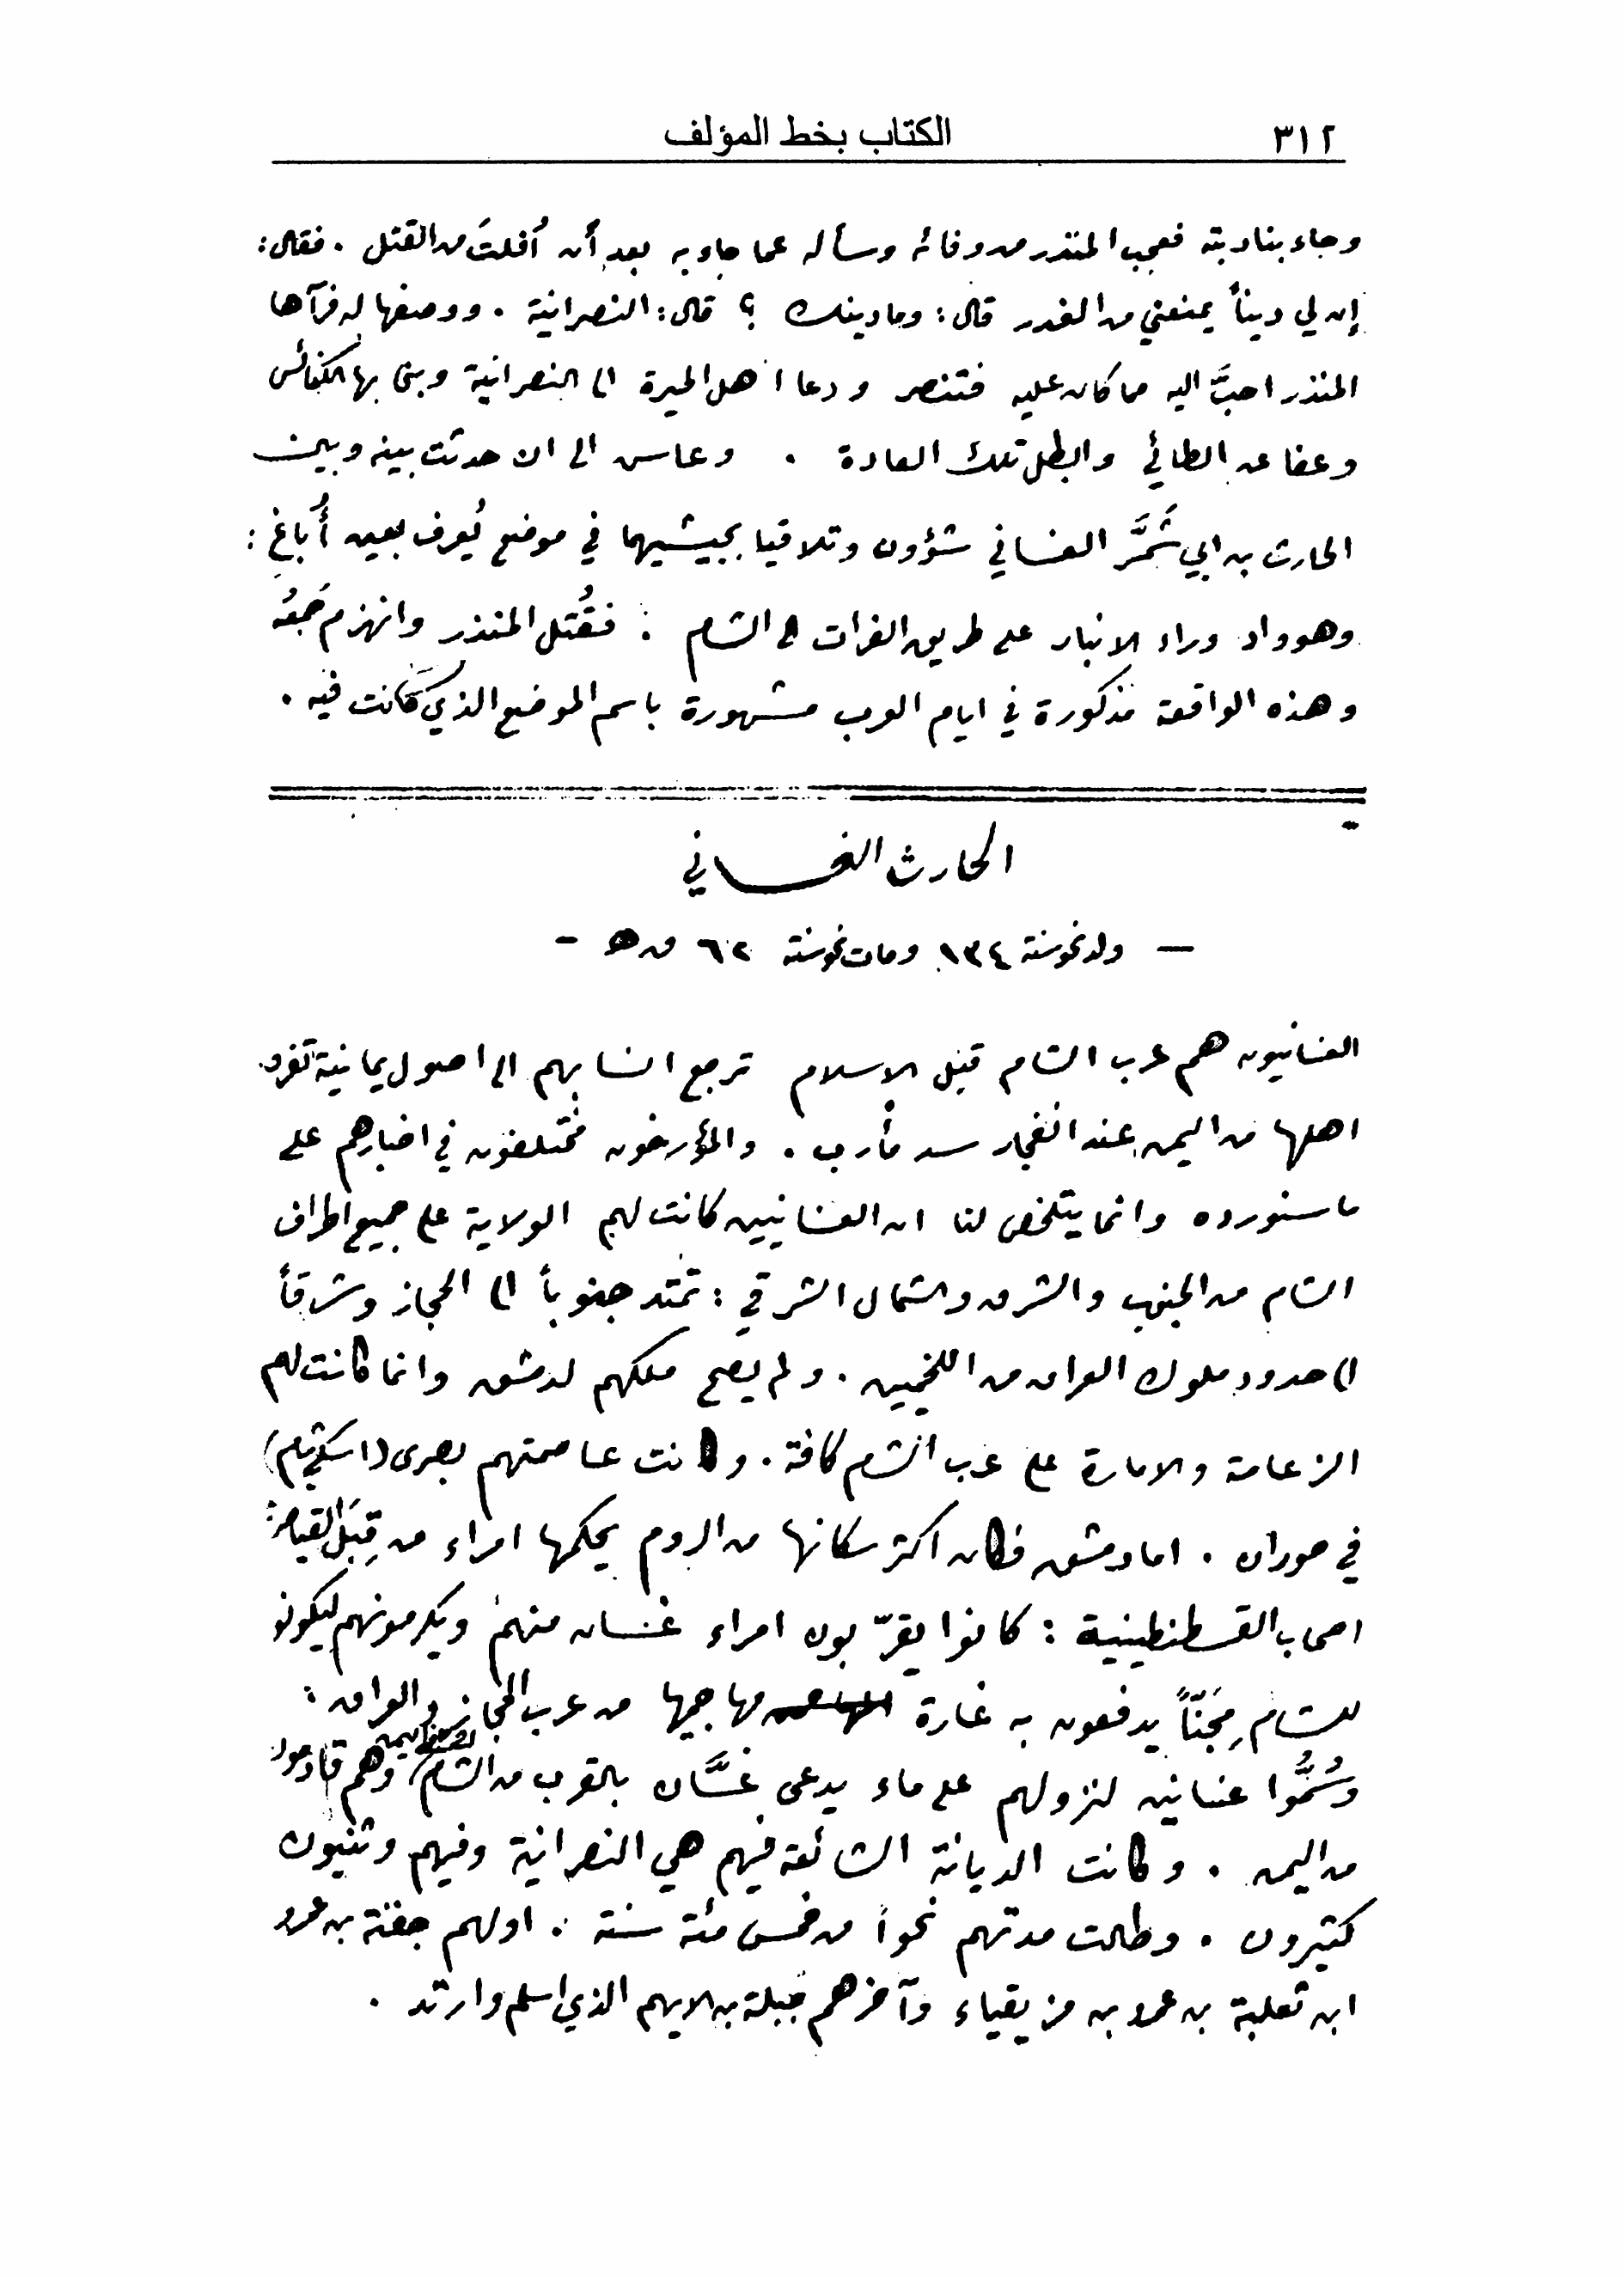 ٣١٢ الكتاب بخط المؤلف
وجاء بنادبته فعجب المنذر من وفائه وسأله عما جاء به بعد أن أفلتَ من القتل . فقال :
إن لي ديناً يمنعني من الغدر قال : وما دينك ؟ قال : النصرانية . ووصفها له فرآها
المنذر احبَّ اليه مما كان عليه فتنصر ودعا اهل الحيرة الى النصرانية وبنى بها الكنائس
وعفا عن الطائي وابطل تلك العادة . وعاس الى ان حدثت بينه وبين
الحارث بن ابي شَمَّر الغساني شؤون وتلاقيا بجيشيهما في موضع يُعرف بعين أُباغ :
وهو واد وراء الانبار على طريق الفرات الى الشام : فقُتل المنذر وانهزم جَمعُه
وهذه الواقعة مذكورة في ايام العرب مشهورة باسم الموضع الذي كانت فيه .
الحارث الغساني
— ولد نحو سنة ١٣٤ ومات نحو سنة ٦٢ ق ه —
الغسانيون هم عرب الشام قبل الاسلام ترجع انسابهم الى اصول يمانية تفرق
اهلها من اليمن عند انفجار سد مأرب . والمؤرخون مختلفون في اخبارهم على
ما سنورده وانما يتلخص لنا ان الغسانيين كانت لهم الولاية على جميع اطراف
الشام من الجنوب والشرق والشمال الشرقي : تمتد جنوباً الى الحجاز وشرقاً
الى حدود ملوك العراق من اللخميين . ولم يصح ملكهم لدمشق وانما كانت لهم
الزعامة والامارة على عرب الشام كافة . وكانت عاصمتهم بصرى (اسكي شام)
في حوران . اما دمشق فكان اكثر سكانها من الروم يحكمها امراء من قِبَل القياصرة
اصحاب القسطنطينية : كانوا يقرّبون امراء غسان منهم ويكرمونهم ليكونوا
للشام مِجَنّاً يدفعون به غارة مهاجميها من عرب الحجاز والعراق :
وسُمُّوا غسانيين لنزولهم على ماء يدعى غسَّان بالقرب من الشام وهم قادمون
من اليمن . وكانت الديانة الشائعة فيهم هي النصرانية وفيهم وثنيون
كثيرون . وطالت مدتهم نحواً من خمس مئة سنة . اولهم جفنة بن عمرو
ابن ثعلبة بن عمرو بن مزيقياء وآخرهم جبلة بن الايهم الذي اسلم وارتد .